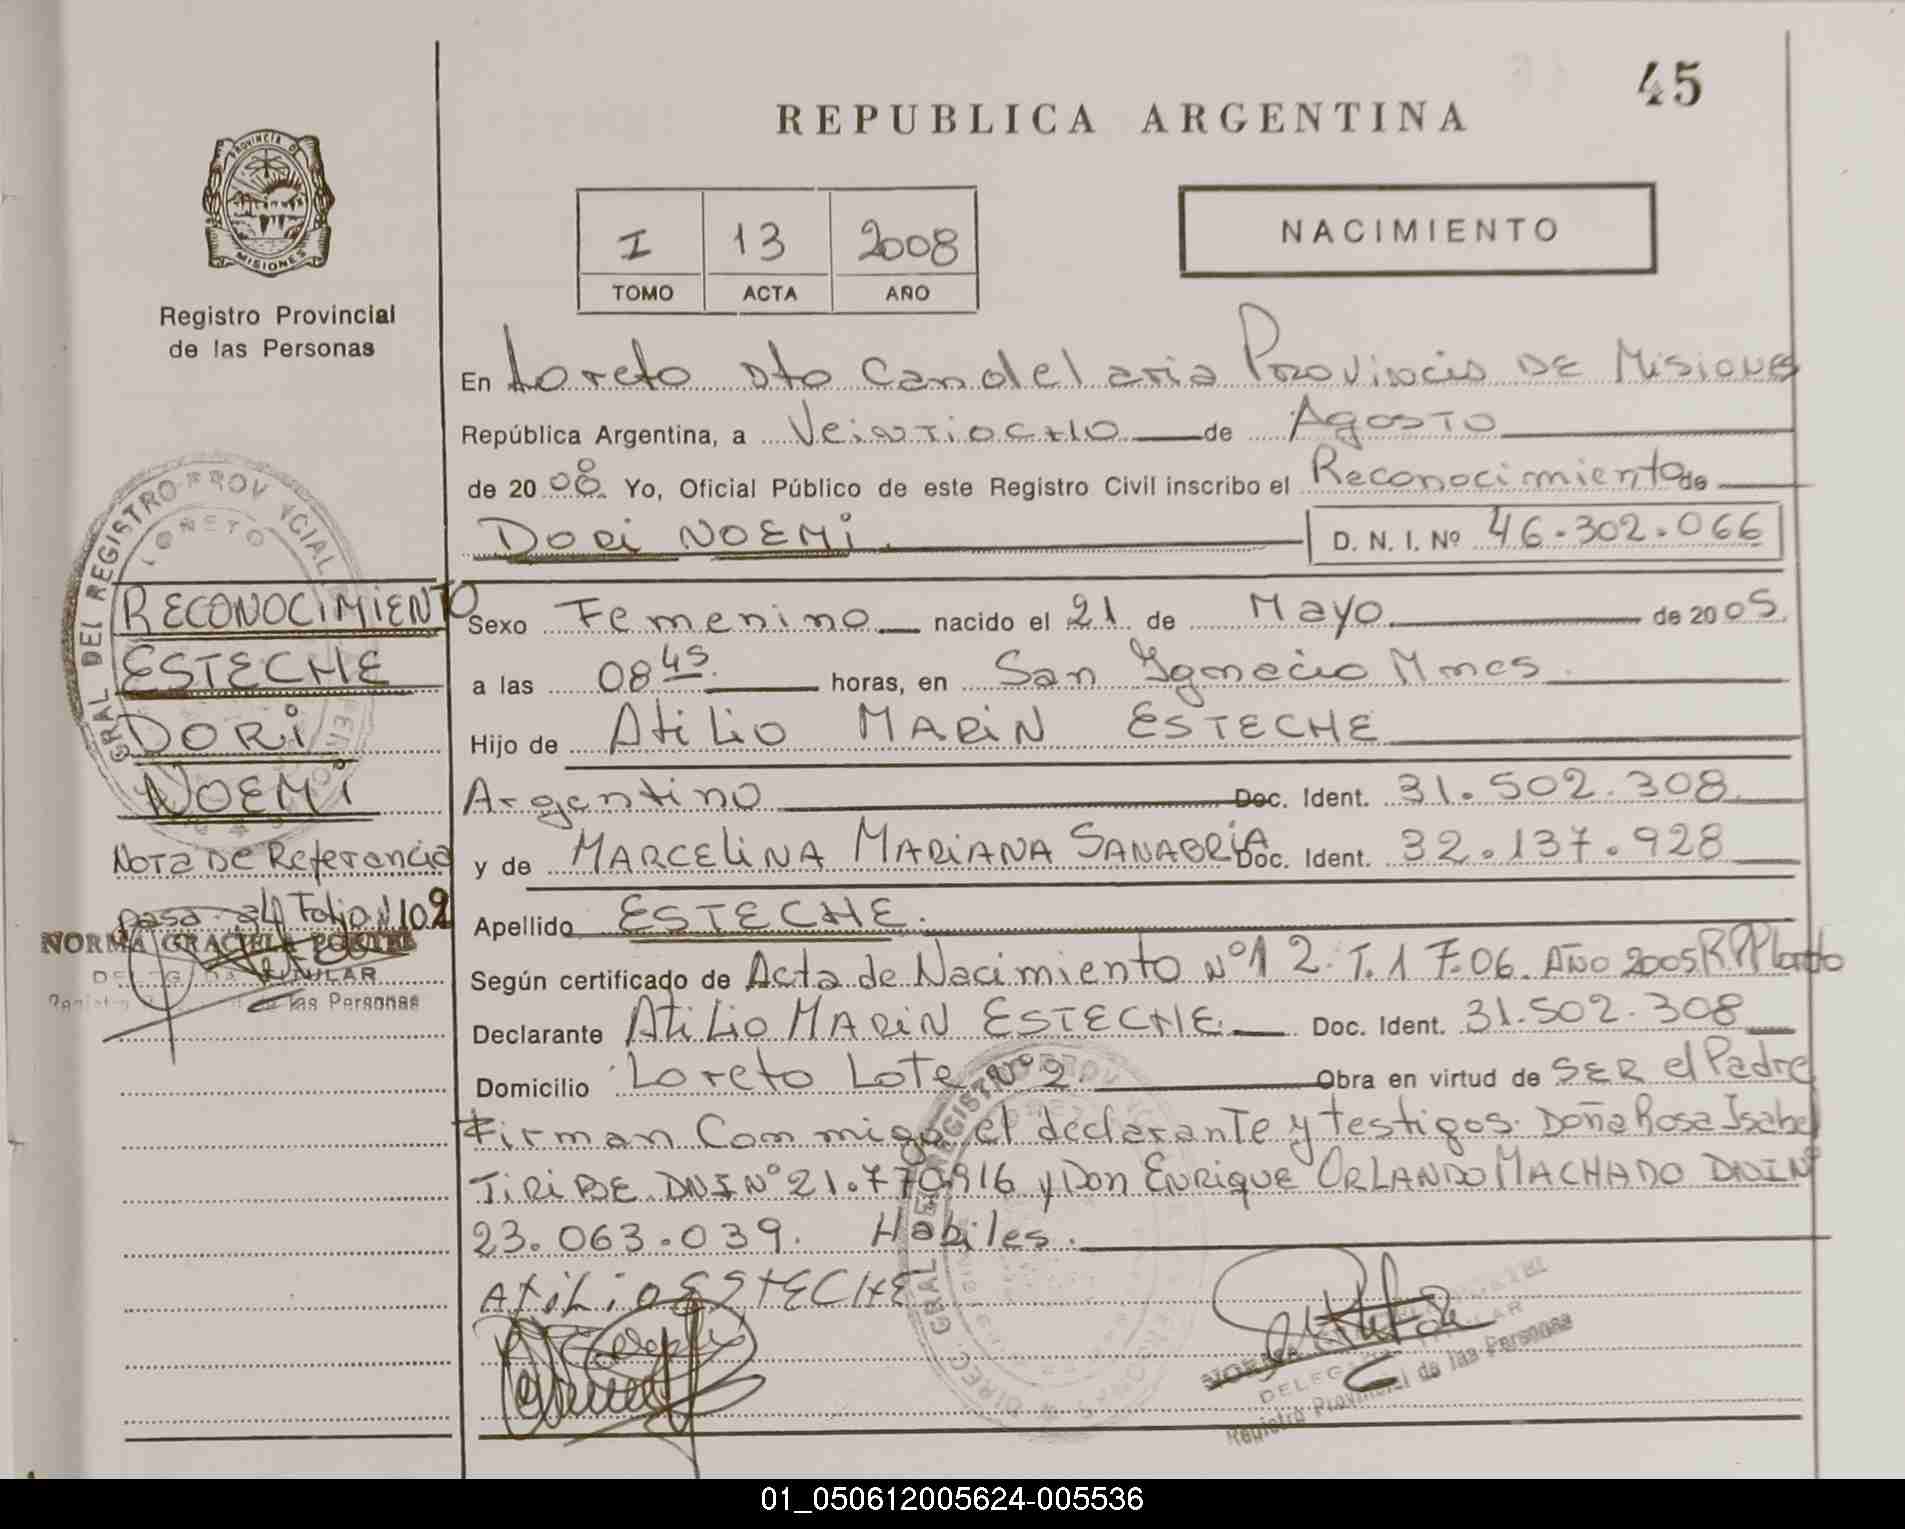 45
REPUBLICA ARGENTINA
PROVINCIA DE
MISIONES
Registro Provincial
de las Personas
I 13 2008
TOMO ACTA AÑO
NACIMIENTO
En Loreto Dto Candelaria Provincia DE Misiones
República Argentina, a Veintiocho de Agosto
de 2008. Yo, Oficial Público de este Registro Civil inscribo el Reconocimiento de
DORi NOEMi. D. N. I. Nº 46.302.066
RECONOCIMIENTO
ESTECHE
DORi
NOEMi
Nota DE Referencia
Pasa al Folio Nº 102
NORMA GRACIELA
TITULAR
de las Personas
Sexo Femenino nacido el 21 de Mayo de 2005.
a las 08 45 horas, en San Ignacio Mnes.
Hijo de AtiLio MARiN ESTECHE
Argentino Doc. Ident. 31.502.308
y de MARCELiNA MARiANA SANABRiA Doc. Ident. 32.137.928
Apellido ESTECHE.
Según certificado de Acta de Nacimiento Nº 12. T.1 F.06. AÑO 2005 RPP Loreto
Declarante AtiLio MARiN ESTECHE Doc. Ident. 31.502.308
Domicilio Loreto Lote Nº 2. Obra en virtud de SER el Padre
Firman Con migo el declarante y testigos. Doña Rosa Isabel
TiRiBE DNI Nº 21.770.916 y Don ENRiQUE ORLANDO MACHADO DNI Nº
23.063.039. Habiles.
AtiLiO ESTECHE
Registro Provincial de las Personas
01_050612005624-005536